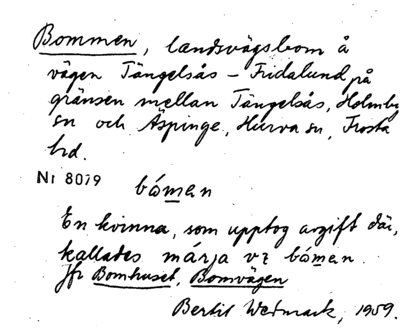 Bommen, landsvägsbom å
vägen Tängelsås - Fridalund på
gränsen mellan Tängelsås, Holmby
sn och Äspinge, Hurva sn, Frosta
hd.
Nr 8079
bóman
En kvinna, som upptog avgift där,
kallades márja vz bóman.
Jfr Bomhuset, Bomvägen
Bertil Wedmark, 1959.